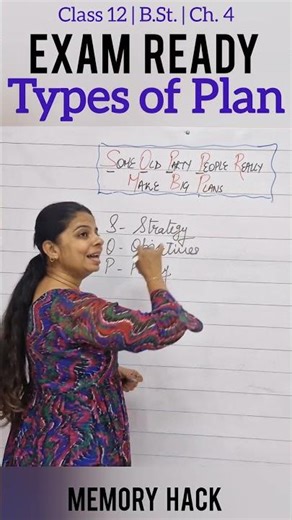 Class 12 | B.St. | Ch. 4
EXAM READY
Types of Plan
SOME OLD PARTY PEOPLE REALLY
MAKE BIG PLANS
S - Strategy
O - Objectives
P -
MEMORY HACK